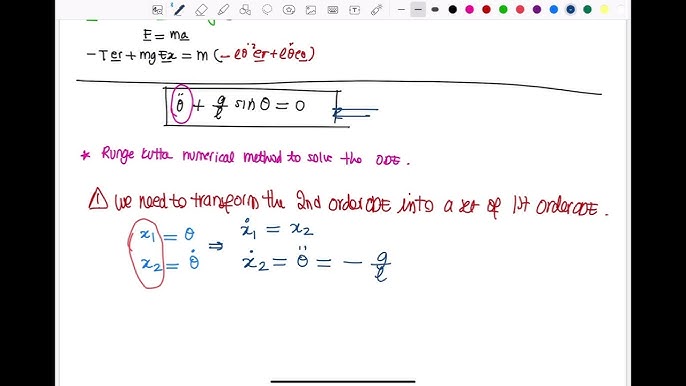 F = ma
-T er + mg Ex = m (-lθ̇²er + lθ̈eθ)
θ̈ + g/l sin θ = 0
* Runge kutta numerical method to solve the ODE.
⚠ we need to transform the 2nd order ODE into a set of 1st order ODE.
x1 = θ ⇒ ẋ1 = x2
x2 = θ̇ ẋ2 = θ̈ = - g/l